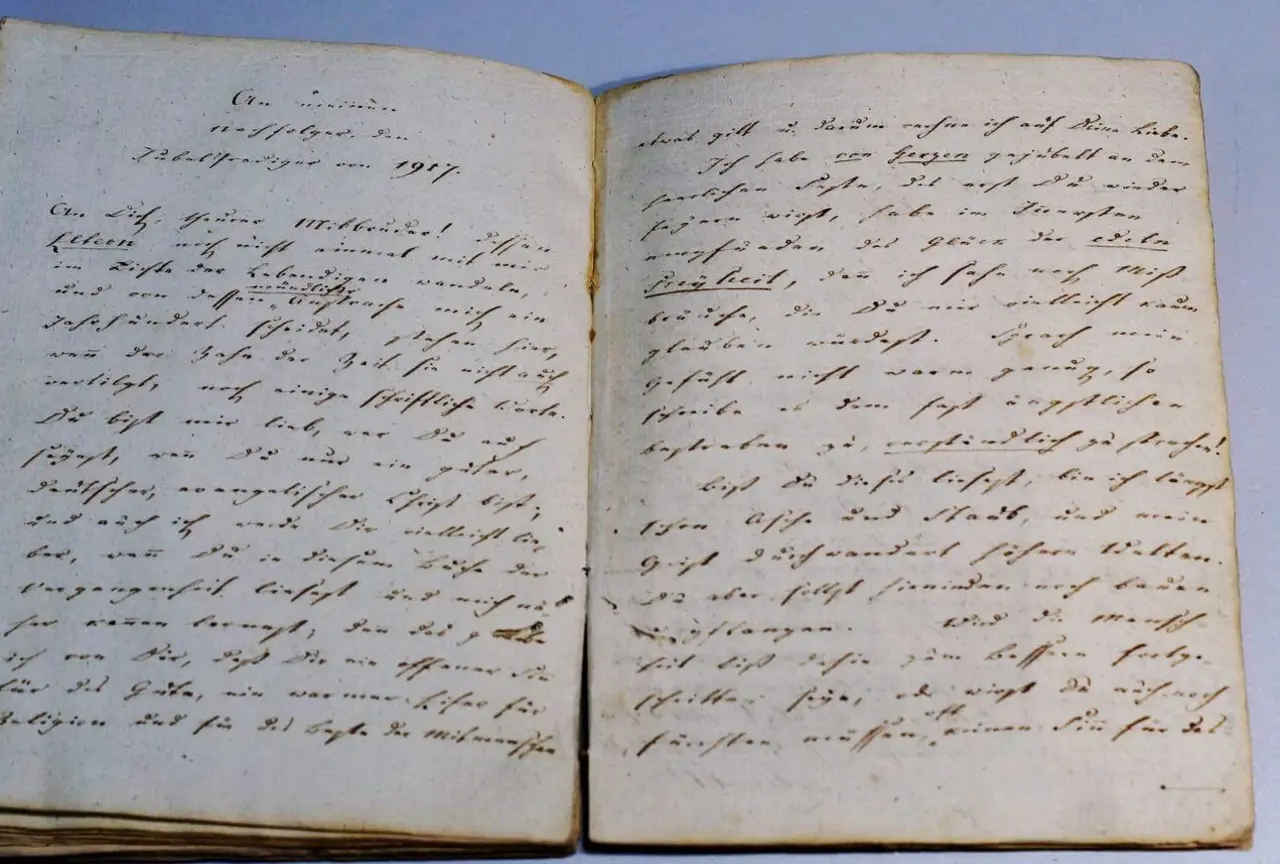 An meinen
Nachfolger, den
Jubelprediger von 1917.
An Dich, theurer Mitbruder! dessen
Eltern noch nicht einmal mit mir
im Lichte der Lebendigen wandeln,
und von dessen mündlicher Ansprache mich ein
Jahrhundert scheidet, stehen hier,
wenn der Zahn der Zeit sie nicht auch
vertilgt, noch einige schriftliche Worte.
Du bist mir lieb, wer Du auch
seyest, wenn Du nur ein guter,
deutscher, evangelischer Christ bist,
und auch ich werde Dir vielleicht lie-
ber, wenn Du in diesem Buche der
Vergangenheit liesest und mich nä-
her kennen lernest; denn das
ich von Dir, daß Dir ein offener Sinn
für das Gute, ein warmer Eifer für
Religion und für das Beste der Mitmenschen
etwas gilt u. darum rechne ich auf Deine Liebe.
Ich habe von Herzen gejubelt an dem
herrlichen Feste, das erst Du wieder
feyern wirst, habe im Innersten
empfunden das Glück der edeln
Freyheit, denn ich sahe noch Miß-
bräuche, die Du mir vielleicht kaum
glauben würdest. Sprach mein
Gefühl nicht warm genug, so
schreibe es dem fast ängstlichen
Bestreben zu, verständlich zu sprechen!
Bist Du dieses liesest, bin ich längst
schon Asche und Staub, und mein
Geist durchwandert höhere Welten.
Du aber sollst hienieden noch bauen
pflanzen. Wird die Mensch-
heit bis dahin zum Bessern fortge-
schritten seyn, oder wirst Du auch noch
fürchten müssen, oft keinen Sinn für das